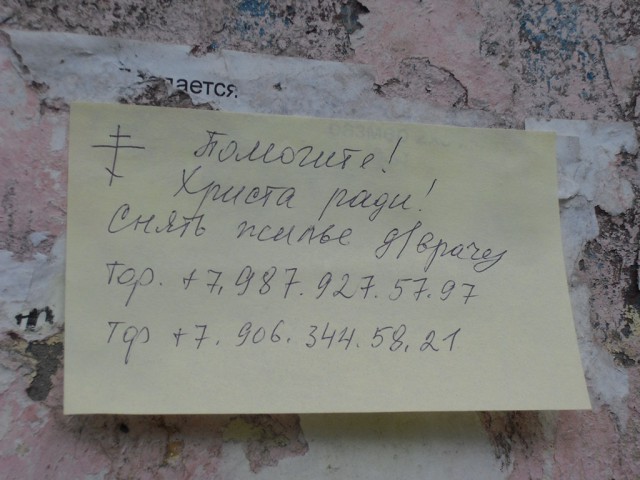 дается.
Помогите!
Христа ради!
Снять жилье д/врача
Тор. +7.987.927.57.97
Тор +7. 906. 344.58.21